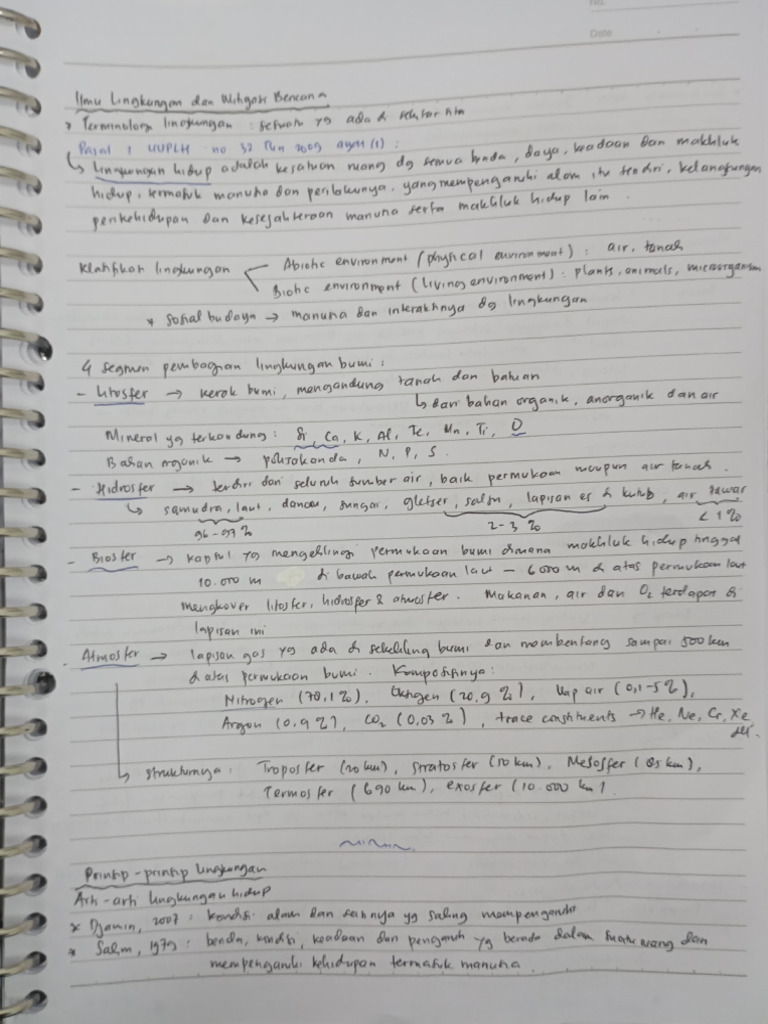 No.
Date
Ilmu Lingkungan dan Mitigasi Bencana
* Terminologi lingkungan : sesuatu yg ada di sekitar kita
Pasal 1 UUPLH no 32 Tahun 2009 ayat (1) :
↳ Lingkungan hidup adalah kesatuan ruang dg semua benda, daya, keadaan dan makhluk
hidup, termasuk manusia dan perilakunya, yang mempengaruhi alam itu sendiri, kelangsungan
perikehidupan dan kesejahteraan manusia serta makhluk hidup lain.
Klasifikasi lingkungan < Abiotic environment (physical environment) : air, tanah
Biotic environment (living environment) : plants, animals, microorganism
* Sosial budaya → manusia dan interaksinya dg lingkungan
4 segmen pembagian lingkungan bumi :
- Litosfer → kerak bumi, mengandung tanah dan batuan
↳ dari bahan organik, anorganik dan air
Mineral yg terkandung : Si, Ca, K, Al, Fe, Mn, Ti, O
Bahan organik → N, P, S.
- Hidrosfer → terdiri dari seluruh sumber air, baik permukaan maupun air tanah.
↳ samudra, laut, danau, sungai, gletser, salju, lapisan es di kutub, air tawar
96-97% 2-3% <1%
- Biosfer → kapsul yg mengelilingi permukaan bumi dimana makhluk hidup tinggal
10.000 m di bawah permukaan laut - 6000 m di atas permukaan laut
mengkover litosfer, hidrosfer & atmosfer. Makanan, air dan O₂ terdapat di
lapisan ini
- Atmosfer → lapisan gas yg ada di sekeliling bumi dan membentang sampai 500 km
di atas permukaan bumi. Komposisinya :
Nitrogen (78,1%), Oksigen (20,9%), Uap air (0,1-5%),
Argon (0,9%), CO₂ (0,03%), trace constituents → He, Ne, Cr, Xe
dll.
↳ strukturnya : Troposfer (20 km), Stratosfer (50 km), Mesosfer (85 km),
Termosfer (690 km), exosfer (10.000 km).
Prinsip-prinsip lingkungan
Arti-arti lingkungan hidup
* Djamin, 2007 : kondisi alam dan seisinya yg saling mempengaruhi
* Salim, 1979 : benda, kondisi, keadaan dan pengaruh yg berada dalam suatu ruang dan
mempengaruhi kehidupan termasuk manusia.